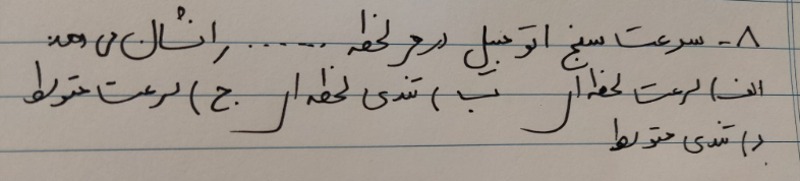 ۸- سرعت سنج اتومبیل در هر لحظه ...... را نشان می دهد.
الف) سرعت لحظه ای ب) تندی لحظه ای ج) سرعت متوسط
د) تندی متوسط